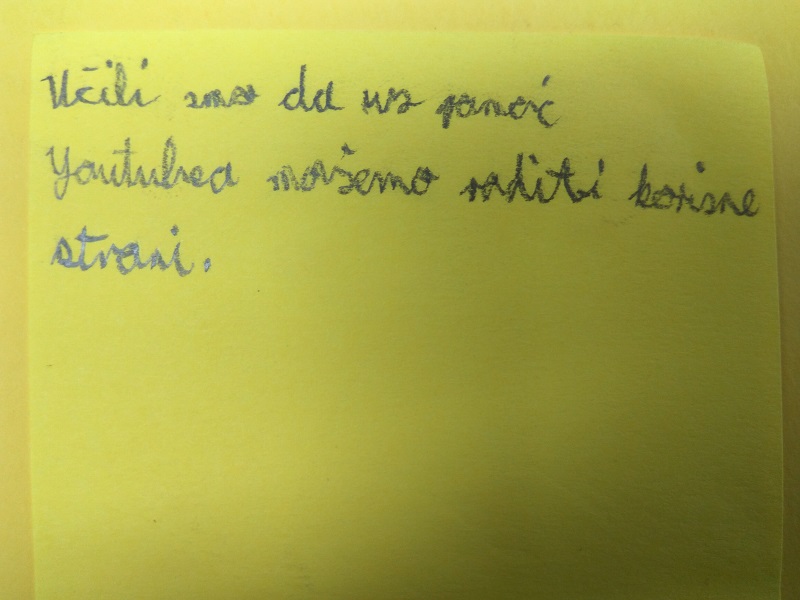 Učili smo da uz pomoć
Youtubea možemo raditi korisne
strani.